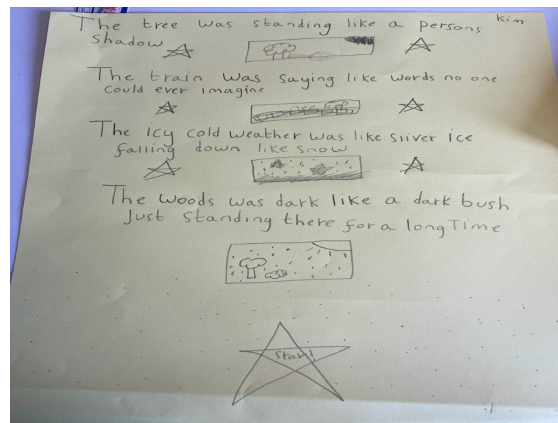 kim
The tree was standing like a persons
Shadow
The train was saying like words no one
could ever imagine
The icy cold weather was like sliver ice
falling down like snow
The woods was dark like a dark bush
Just standing there for a long Time
Star!